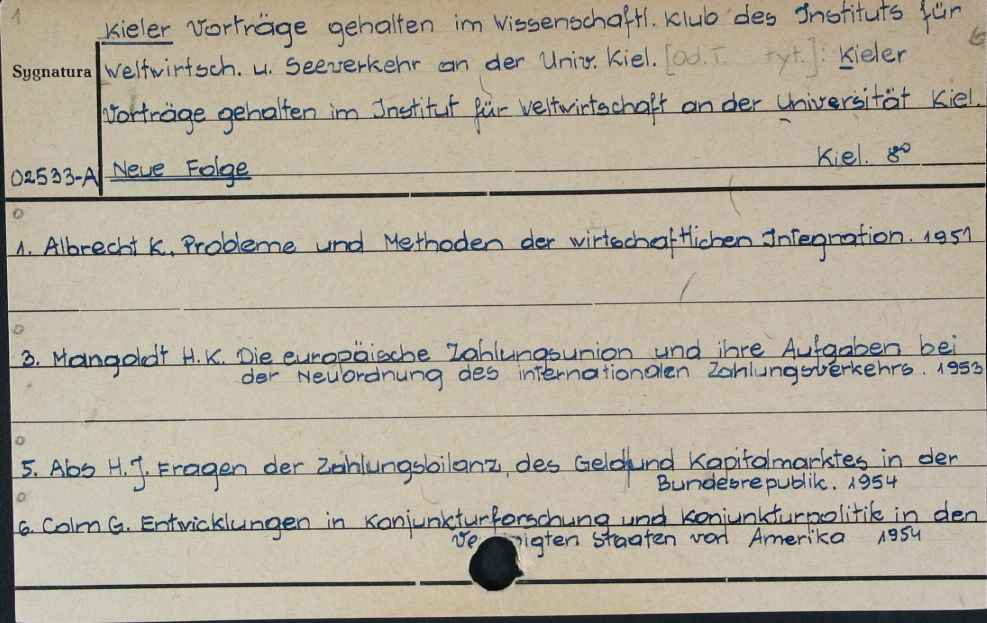 1
Kieler Vorträge gehalten im Wissenschaftl. Klub des Instituts für
Sygnatura Weltwirtsch. u. Seeverkehr an der Univ. Kiel. [Od.T. tyt.]: Kieler
Vorträge gehalten im Institut für Weltwirtschaft an der Universität Kiel.
Kiel. 8º
02533-A Neue Folge
1. Albrecht K. Probleme und Methoden der wirtschaftlichen Integration. 1951
3. Mangoldt H.K. Die europäische Zahlungsunion und ihre Aufgaben bei
der Neuordnung des internationalen Zahlungsverkehrs. 1953
5. Abs H.J. Fragen der Zahlungsbilanz, des Geld und Kapitalmarktes in der
Bundesrepublik. 1954
6. Colm G. Entwicklungen in Konjunkturforschung und Konjunkturpolitik in den
Ve nigten Staaten von Amerika 1954